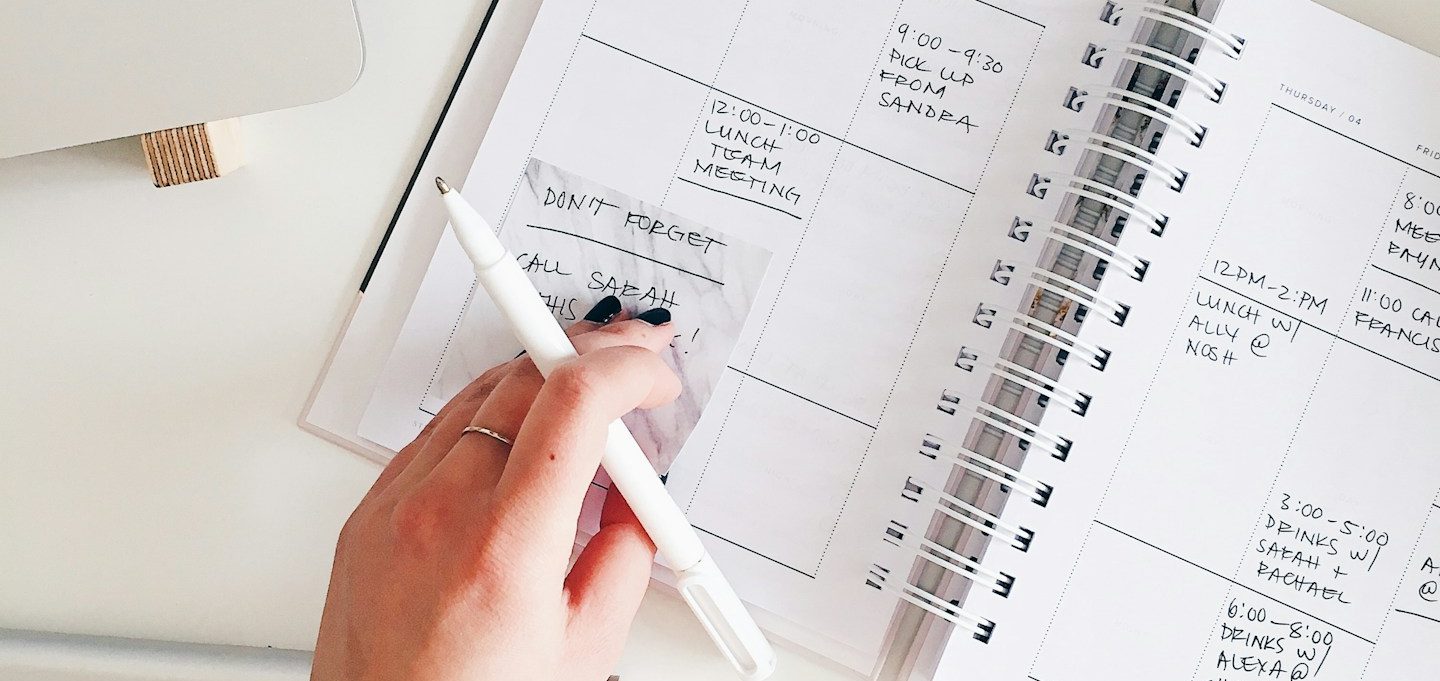 9:00 - 9:30
PICK UP
FROM
SANDRA
12:00 - 1:00
LUNCH
TEAM
MEETING
DON'T FORGET
CALL SARAH
THIS
!
THURSDAY / 04
12PM-2:PM
LUNCH W/
ALLY @
NOSH
11:00
3:00-5:00
DRINKS W/
SARAH +
RACHAEL
6:00-8:00
DRINKS W/
ALEXA @
@